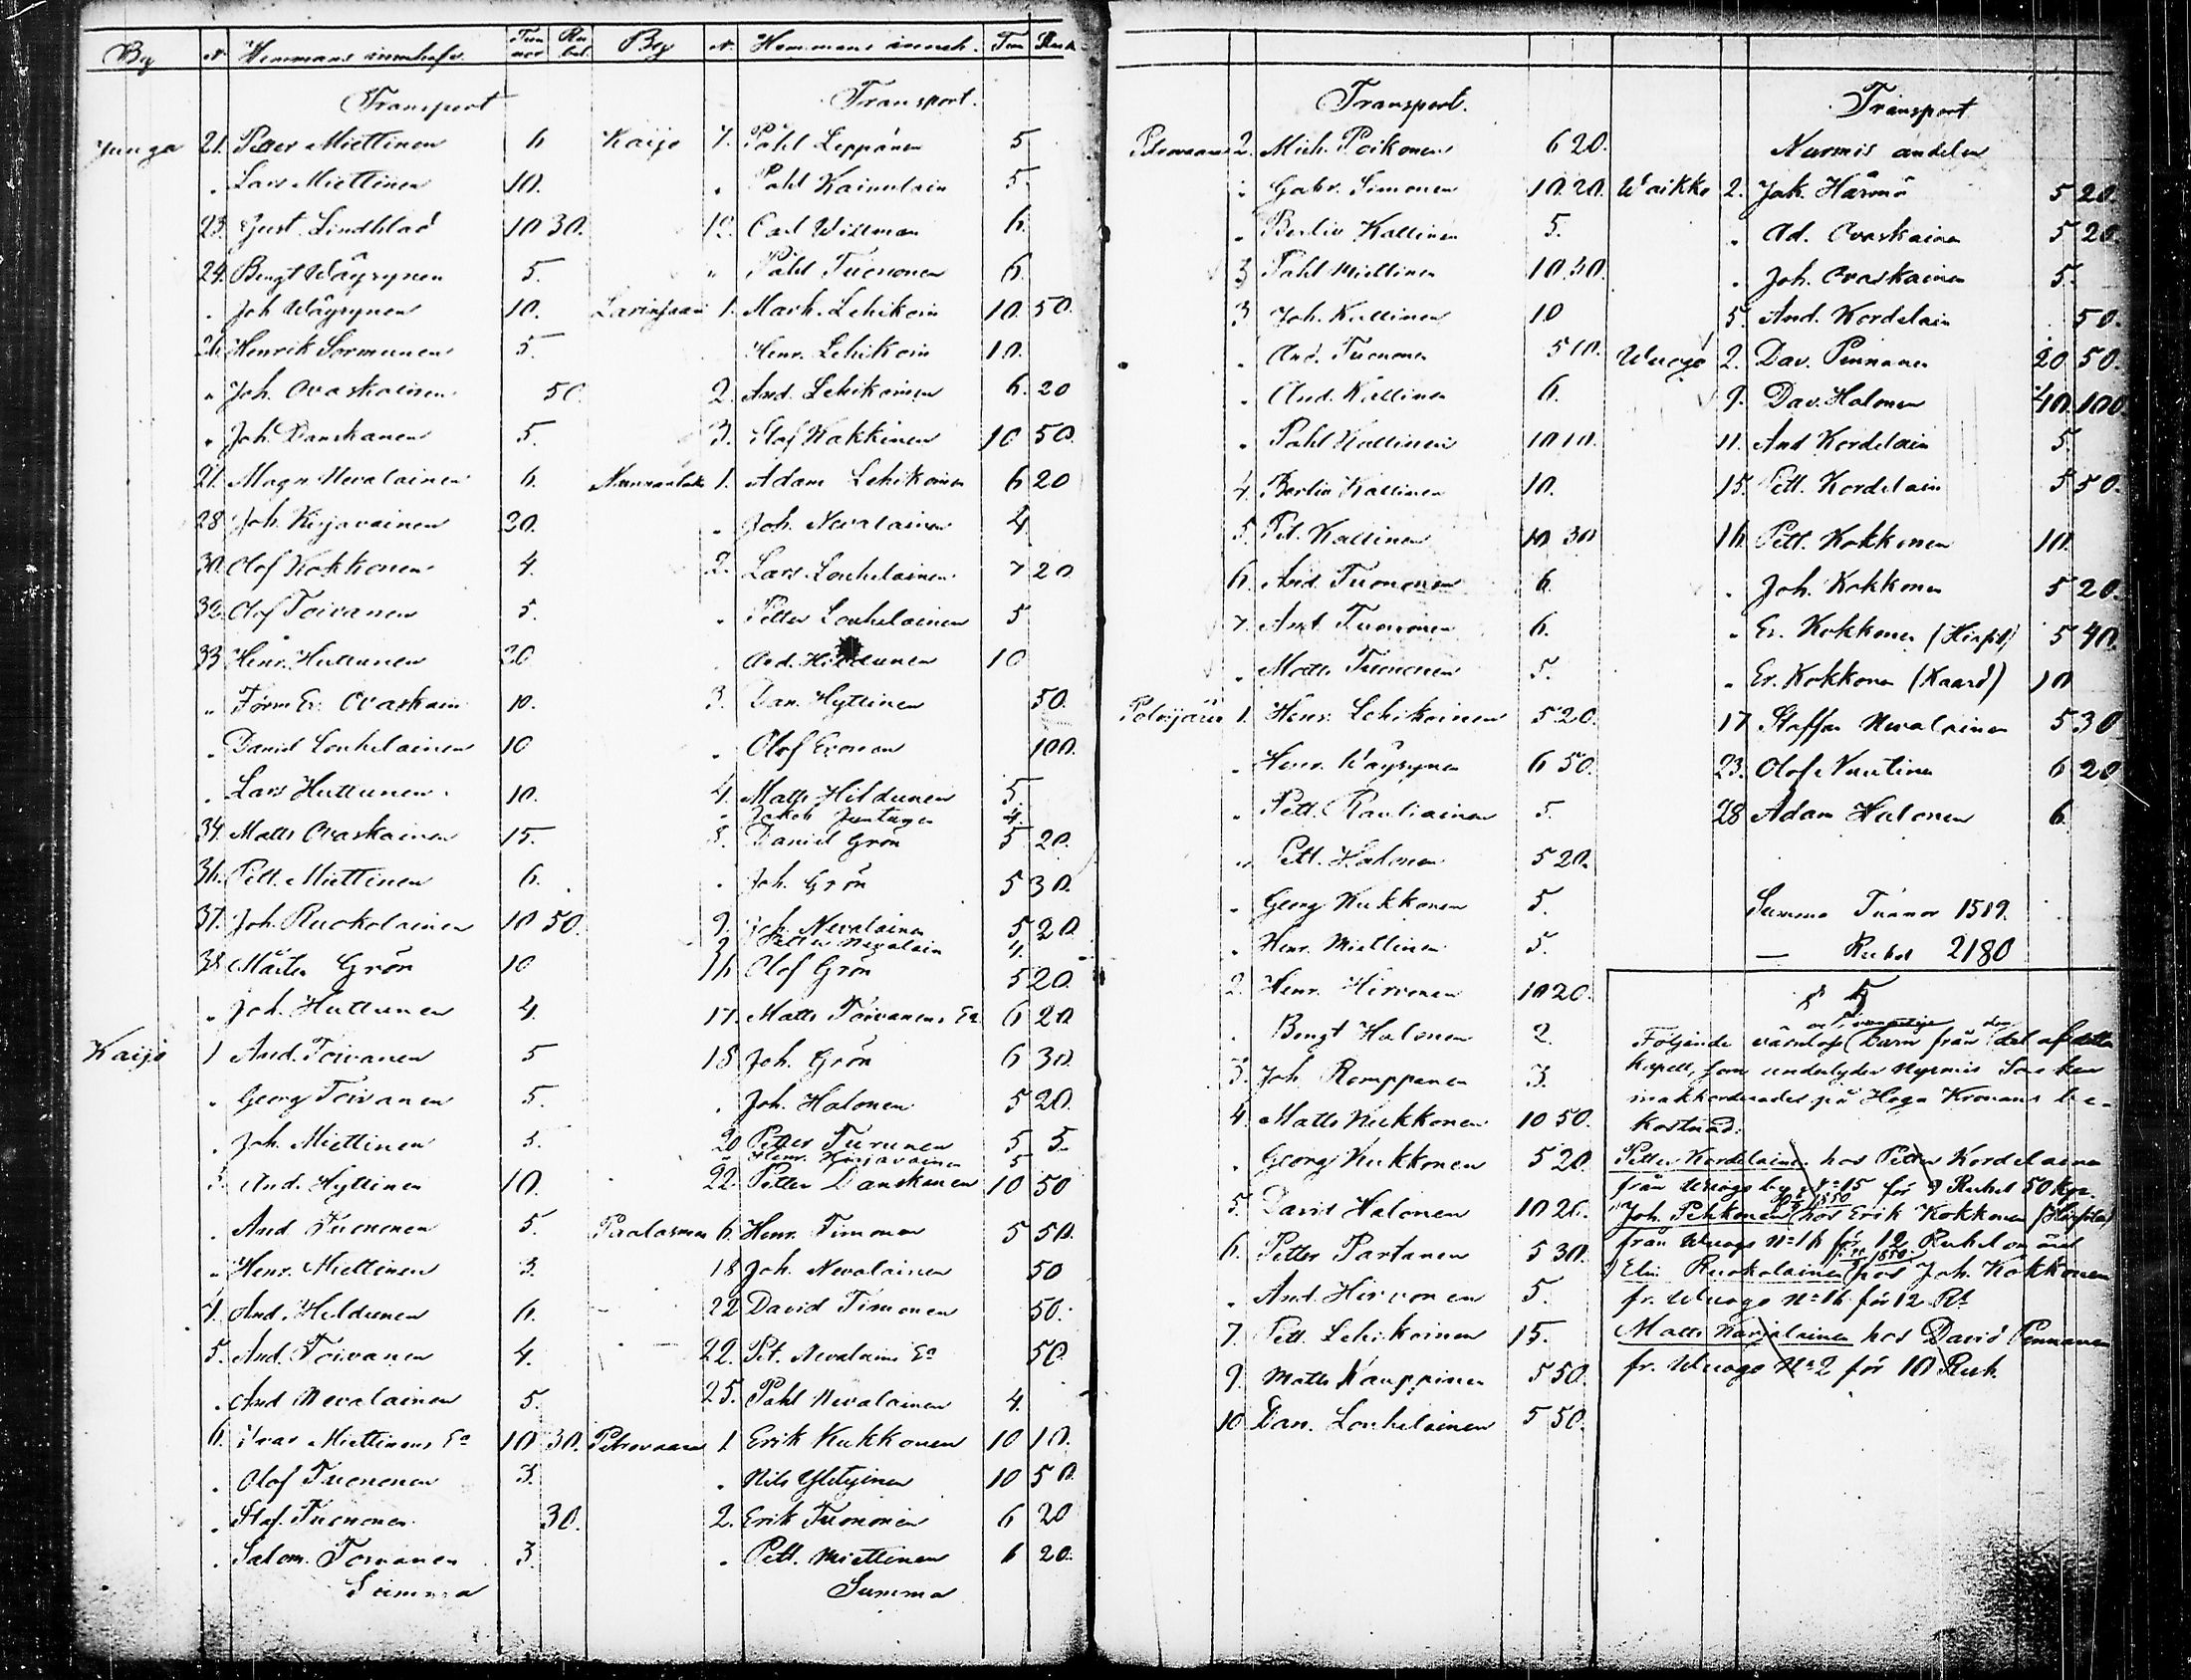 By N Hemmans innehafv. Tunnor Rubel
Transport
Junga 21. Petter Miettinen 6
" Lars Miettinen 10.
23. Gust. Lindblad 10 30.
24. Bengt Wäyrynen 5.
" Joh Wäyrynen 10.
26. Henrik Sormunen 5.
" Joh. Ovaskainen 50.
" Joh. Danskanen 5.
27. Magn Nevalainen 6.
28. Joh. Kirjavainen 20.
30. Olof Kokkonen 4.
32. Olof Toivanen 5.
33 Henr. Huttunen 20
" Förm Er. Ovaskain 10.
" David Louhelainen 10
" Lars Huttunen 10.
34. Matts Ovaskainen 15.
36. Pett. Miettinen 6.
37. Joh. Ruokolainen 10 50.
38 Mårten Grön 10
" Joh. Huttunen 4.
Kaijo 1 And. Toivanen 5
" Georg Toivanen 5.
" Joh. Miettinen 5.
3. And. Hyttinen 10.
" And Tuononen 5.
" Henr. Miettinen 3.
4. And. Hildunen 6.
5. And. Toivanen 4.
" And Nevalainen 5.
6. Ivar Miettinens Ea 10 30.
" Olof Tuononen 3.
" Staf. Tuononen 30.
" Salom. Toivanen 3.
Summa
By N. Hemmans inneh. Tun Rub.
Transport.
Kaijo 7. Påhl Leppänen 5
" Påhl Kainulain 5.
12. Carl Willman 6.
" Påhl Tuononen 6.
Larinsaari 1. Mark. Lehikoin 10. 50.
Henr. Lehikoin 10.
2. And. Lehikoinen 6. 20
3. Olof Hakkinen 10 50.
Nunnanlaks 1. Adam Lehikoinen 6 20
" Joh. Nevalainen 4
2. Lars Louhelainen 7 20
" Petter Louhelainen 5
And. Hildunen 10
3. Dan. Hyttinen 50.
" Olof Eronen 100.
4. Matts Hildunen 5.
" Jakob Juntunen 4.
5. Daniel Grön 5 20.
" Joh. Grön 5 30.
9. Joh. Nevalainen 5 20
9 Petter Nevalain 4.
16 Olof Grön 5 20.
17. Matts Toivanens Ea 6 20
18 Joh. Grön 6 30.
" Joh. Halonen 5 20.
20 Petter Turunen 5 5.
" Henr. Kirjavainen 5
22. Petter Danskanen 10 50
Paalasmaa 6. Henr. Timonen 5 50.
18 Joh. Nevalainen 50
22 David Timonen 50.
22. Pet. Nevalains Ea 50.
25. Påhl Nevalainen 4.
Petrovaara 1. Erik Kukkonen 10 10.
" Nils Yletyinen 10 50.
2. Erik Tuononen 6 20
" Pett. Miettinen 6 20.
Summa
Transport.
Petrovaara 2. Mich. Poikonen 6 20.
" Gabr. Simonen 10. 20.
" Bertin Kallinen 5.
3 Påhl Miettinen 10. 30.
3 Joh. Kallinen 10
" And. Tuononen 5 10.
" And. Kallinen 6.
" Påhl Kallinen 10 10.
4 Bertin Kallinen 10.
5. Pet. Kallinen 10 30
6. And. Tuononen 6.
7. And. Tuononen 6.
" Matts Tuononen 5.
Polvijärvi 1. Henr. Lehikoinen 5 20.
" Henr. Wäyrynen 6 50.
" Pett. Rautiainen 5.
" Pett. Halonen 5 20.
" Georg Kukkonen 5.
" Henr. Miettinen 5.
2. Henr. Hirvonen 10 20.
" Bengt Halonen 2.
3. Joh. Romppanen 3.
4. Matts Kukkonen 10 50.
" Georg Kukkonen 5 20.
5. David Halonen 10 20.
6. Petter Partanen 5 30.
" And. Hirvonen 5.
7. Pett. Lehikoinen 15.
9. Matts Kauppinen 5 50.
10. Dan. Louhelainen 5 50.
Transport
Nurmis andelen
Waikko 2. Jak. Härmä 5 20.
" Ad. Ovaskainen 5 20.
" Joh. Ovaskainen 5.
5. And. Kordelain 50.
Wuogo 2. Dav. Pennanen 20 50.
9. Dav. Halonen 40. 100
11. And Kordelain 5.
15. Pett. Kordelain 5 50.
16 Pett. Kokkonen 10.
" Joh. Kokkonen 5 20.
" Er. Kokkonen (Hirfit) 5 40.
" Er. Kokkonen (Kaard) 10
17 Staffan Nevalainen 5 30
23. Olof Nuutinen 6 20
28 Adam Halonen 6.
Summa Tunnor 1519.
— Rubel 2180
§ 5
Följande värnlösa Barn från den del af detta
kapell, som underlyder Nurmis Socken
inakkorderades på Höga Kronans be-
kostnad:
Petter Kordelainen hos Petter Kordelainen
från Wuogo by No 15 för 7 Rubel 50 kop.
Joh. Pehkonen hos Erik Kokkonen
från Wuogo No 16 för 12 Rubel om året
Elin Ruokolainen hos Joh. Kokkonen
fr. Wuogo No 16 för 12 Rb
Matts Karjalainen hos David Pennanen
fr. Wuogo No 2 för 10 Rub.